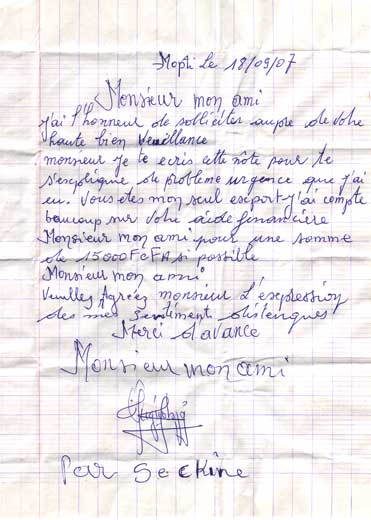 Mopti Le 18/09/07
Monsieur mon ami
j'ai l'honneur de solliciter aupre de votre
haute bien veuillance
monsieur je te ecris cette nôte pour te
s'explique de problème urgence que j'ai
eu. Vous etes mon seul esport j'ai compte
beaucoup sur votre aide financirre
Monsieur mon ami pour une somme
de 15000FCFA si possible
Monsieur mon ami
Veuillez Agréez monsieur L'expression
des mes sentiment distengues
Merci d'avance
Monsieur mon ami
Par Seckine